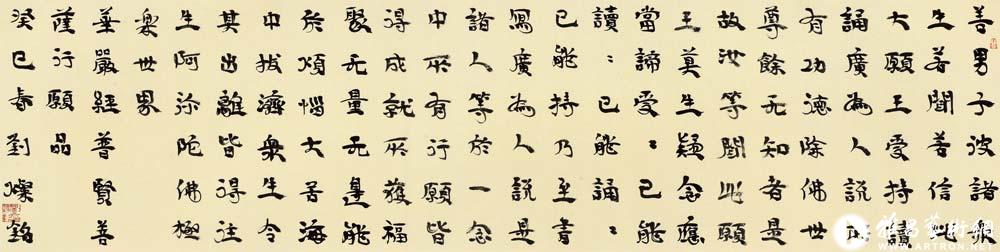 善男子彼諸眾
生若聞若信此
大願王受持讀
誦廣為人說所
有功德除佛世
尊餘无知者是
故汝等聞此願
王莫生疑念應
當諦受：已能
讀：已能誦：
已能持乃至書
寫廣為人說是
諸人等於一念
中所有行願皆
得成就所獲福
聚无量无邊能
於煩惱大苦海
中拔濟眾生令
其出離皆得往
生阿弥陀佛極
樂世界
華嚴經普賢菩
薩行願品
癸巳春劉燦銘
雅昌藝術網
WWW.ARTRON.NET